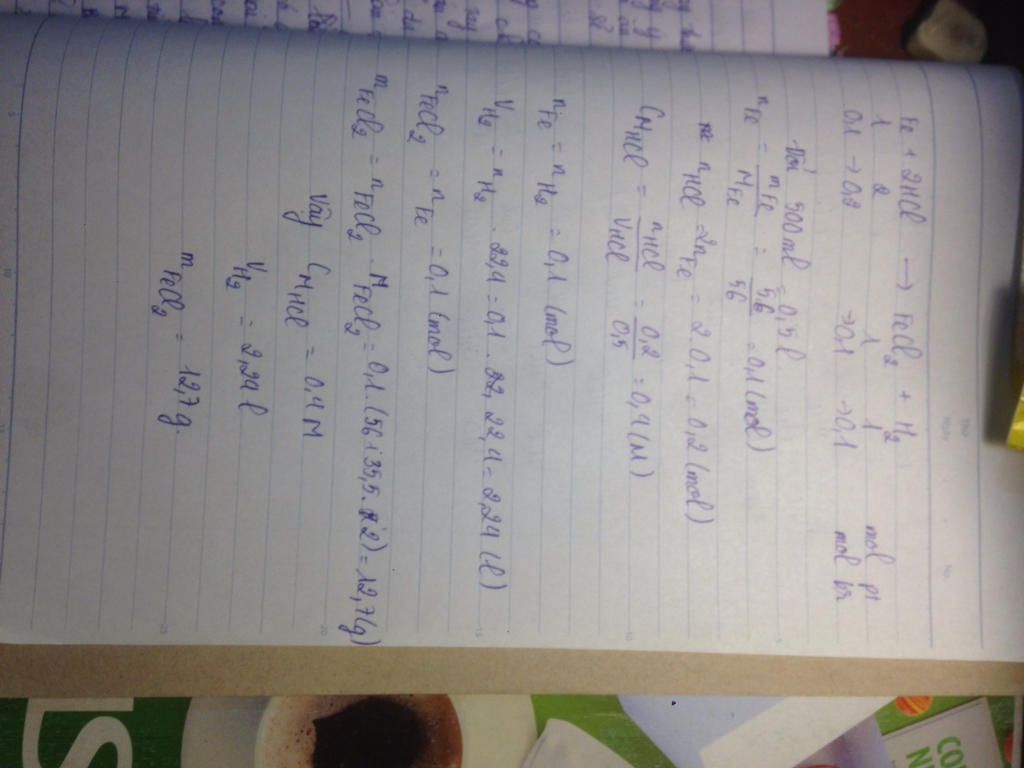 Fe + 2HCl → FeCl2 + H2
1 2 1 1 mol pt
0,1 → 0,2 → 0,1 → 0,1 mol
500ml = 0,5 l
nFe = mFe / MFe = 5,6 / 56 = 0,1 (mol)
nHCl = 2nFe = 2 . 0,1 = 0,2 (mol)
CM HCl = nHCl / VHCl = 0,2 / 0,5 = 0,4 (M)
nFe = nH2 = 0,1 (mol)
VH2 = nH2 . 22,4 = 0,1 . 22, 22,4 = 2,24 (l)
nFeCl2 = nFe = 0,1 (mol)
mFeCl2 = nFeCl2 . MFeCl2 = 0,1 . (56 + 35,5 . 2) = 12,7 (g)
Vậy CM HCl = 0,4 M
VH2 = 2,24 l
mFeCl2 = 12,7 g.